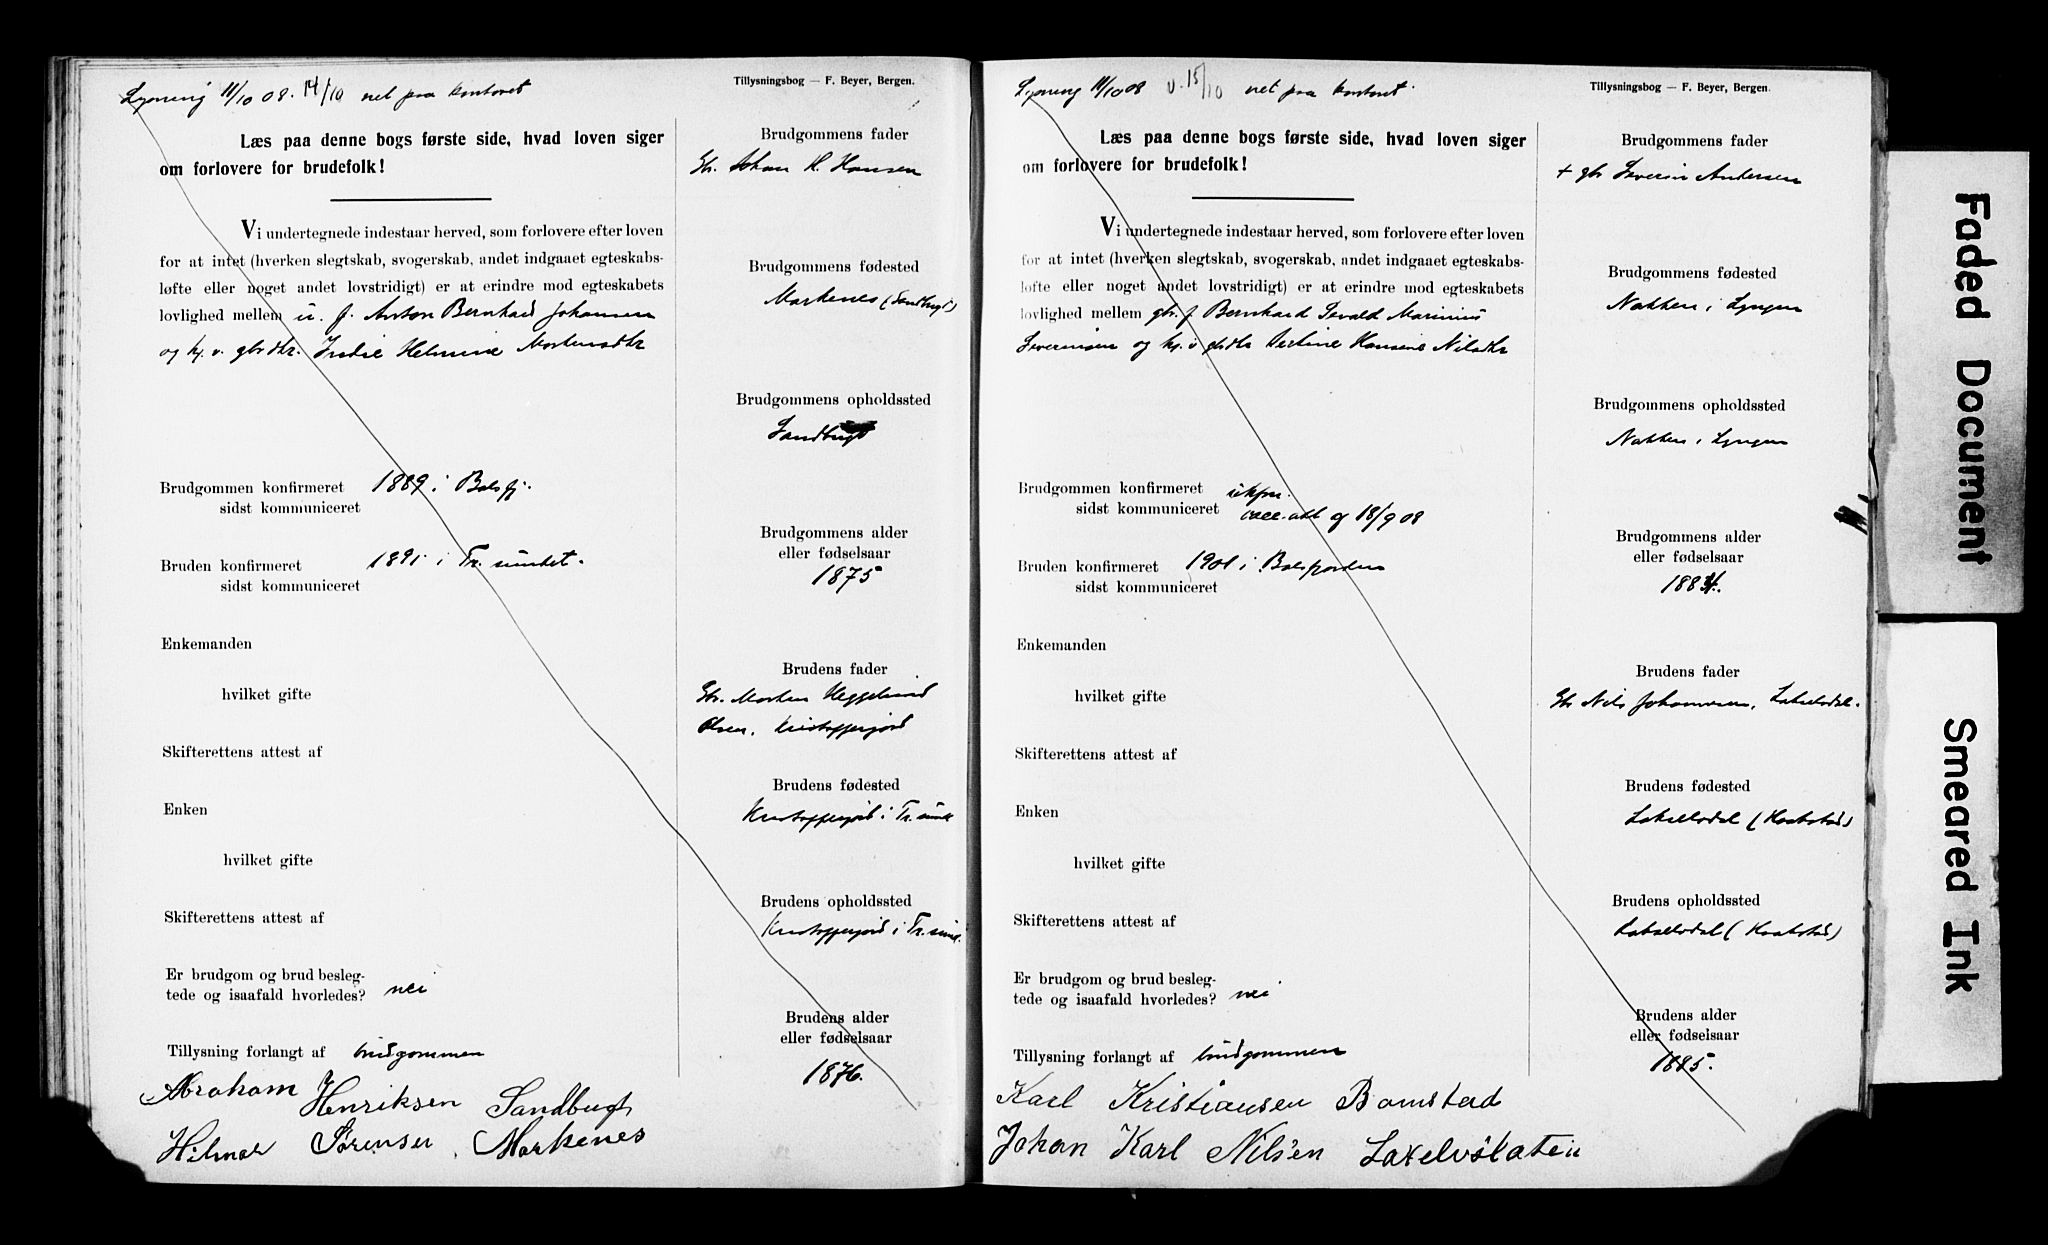 Lysning 11/10 08. 14/10 net paa kontoret
Tillysningsbog — F. Beyer, Bergen.
Læs paa denne bogs første side, hvad loven siger
om forlovere for brudefolk!
Vi undertegnede indestaar herved, som forlovere efter loven
for at intet (hverken slegtskab, svogerskab, andet indgaaet egteskabs-
løfte eller noget andet lovstridigt) er at erindre mod egteskabets
lovlighed mellem u. f. Anton Bernhard Johansen
og hj. v. gbrdtr. Helmine Mortensdtr
Brudgommen konfirmeret 1889 i Balsfj.
sidst kommuniceret
Bruden konfirmeret 1891 i Tr. sundet.
sidst kommuniceret
Enkemanden
hvilket gifte
Skifterettens attest af
Enken
hvilket gifte
Skifterettens attest af
Er brudgom og brud besleg-
tede og isaafald hvorledes? nei
Tillysning forlangt af brudgommen
Brudgommens fader
Gbr. Johan H. Hansen
Brudgommens fødested
Markenes (Sandbugt)
Brudgommens opholdssted
Sandbugt
Brudgommens alder
eller fødselsaar
1875
Brudens fader
Gbr. Morten Heggelund
Olsen, Kristofferjord
Brudens fødested
Kristofferjord i Tr. sund
Brudens opholdssted
Kristofferjord i Tr. sund.
Brudens alder
eller fødselsaar
1876.
Abraham Henriksen Sandbugt
Hilmar Sørensen, Markenes
Lysning 11/10 08 v. 15/10 net paa kontoret.
Tillysningsbog — F. Beyer, Bergen.
Læs paa denne bogs første side, hvad loven siger
om forlovere for brudefolk!
Vi undertegnede indestaar herved, som forlovere efter loven
for at intet (hverken slegtskab, svogerskab, andet indgaaet egteskabs-
løfte eller noget andet lovstridigt) er at erindre mod egteskabets
lovlighed mellem gbr. f Bernhard Sevald Marinius
Severinsen og hj. v gbdtr Hansine Nilsdtr
Brudgommen konfirmeret ukfm.
sidst kommuniceret vacc. att af 18/9 08
Bruden konfirmeret 1901 i Balsfjorden
sidst kommuniceret
Enkemanden
hvilket gifte
Skifterettens attest af
Enken
hvilket gifte
Skifterettens attest af
Er brudgom og brud besleg-
tede og isaafald hvorledes? nei
Tillysning forlangt af brudgommen
Brudgommens fader
+ gbr Severin Andersen
Brudgommens fødested
Nakken i Lyngen
Brudgommens opholdssted
Nakken i Lyngen
Brudgommens alder
eller fødselsaar
1884.
Brudens fader
Gbr Nils Johannesen, Lakselvdal.
Brudens fødested
Lakselvdal (Kantornes)
Brudens opholdssted
Lakselvdal
Brudens alder
eller fødselsaar
1885.
Karl Kristiansen Bomstad
Johan Karl Nilsen Laxelvslaten
Faded Document
Smeared Ink